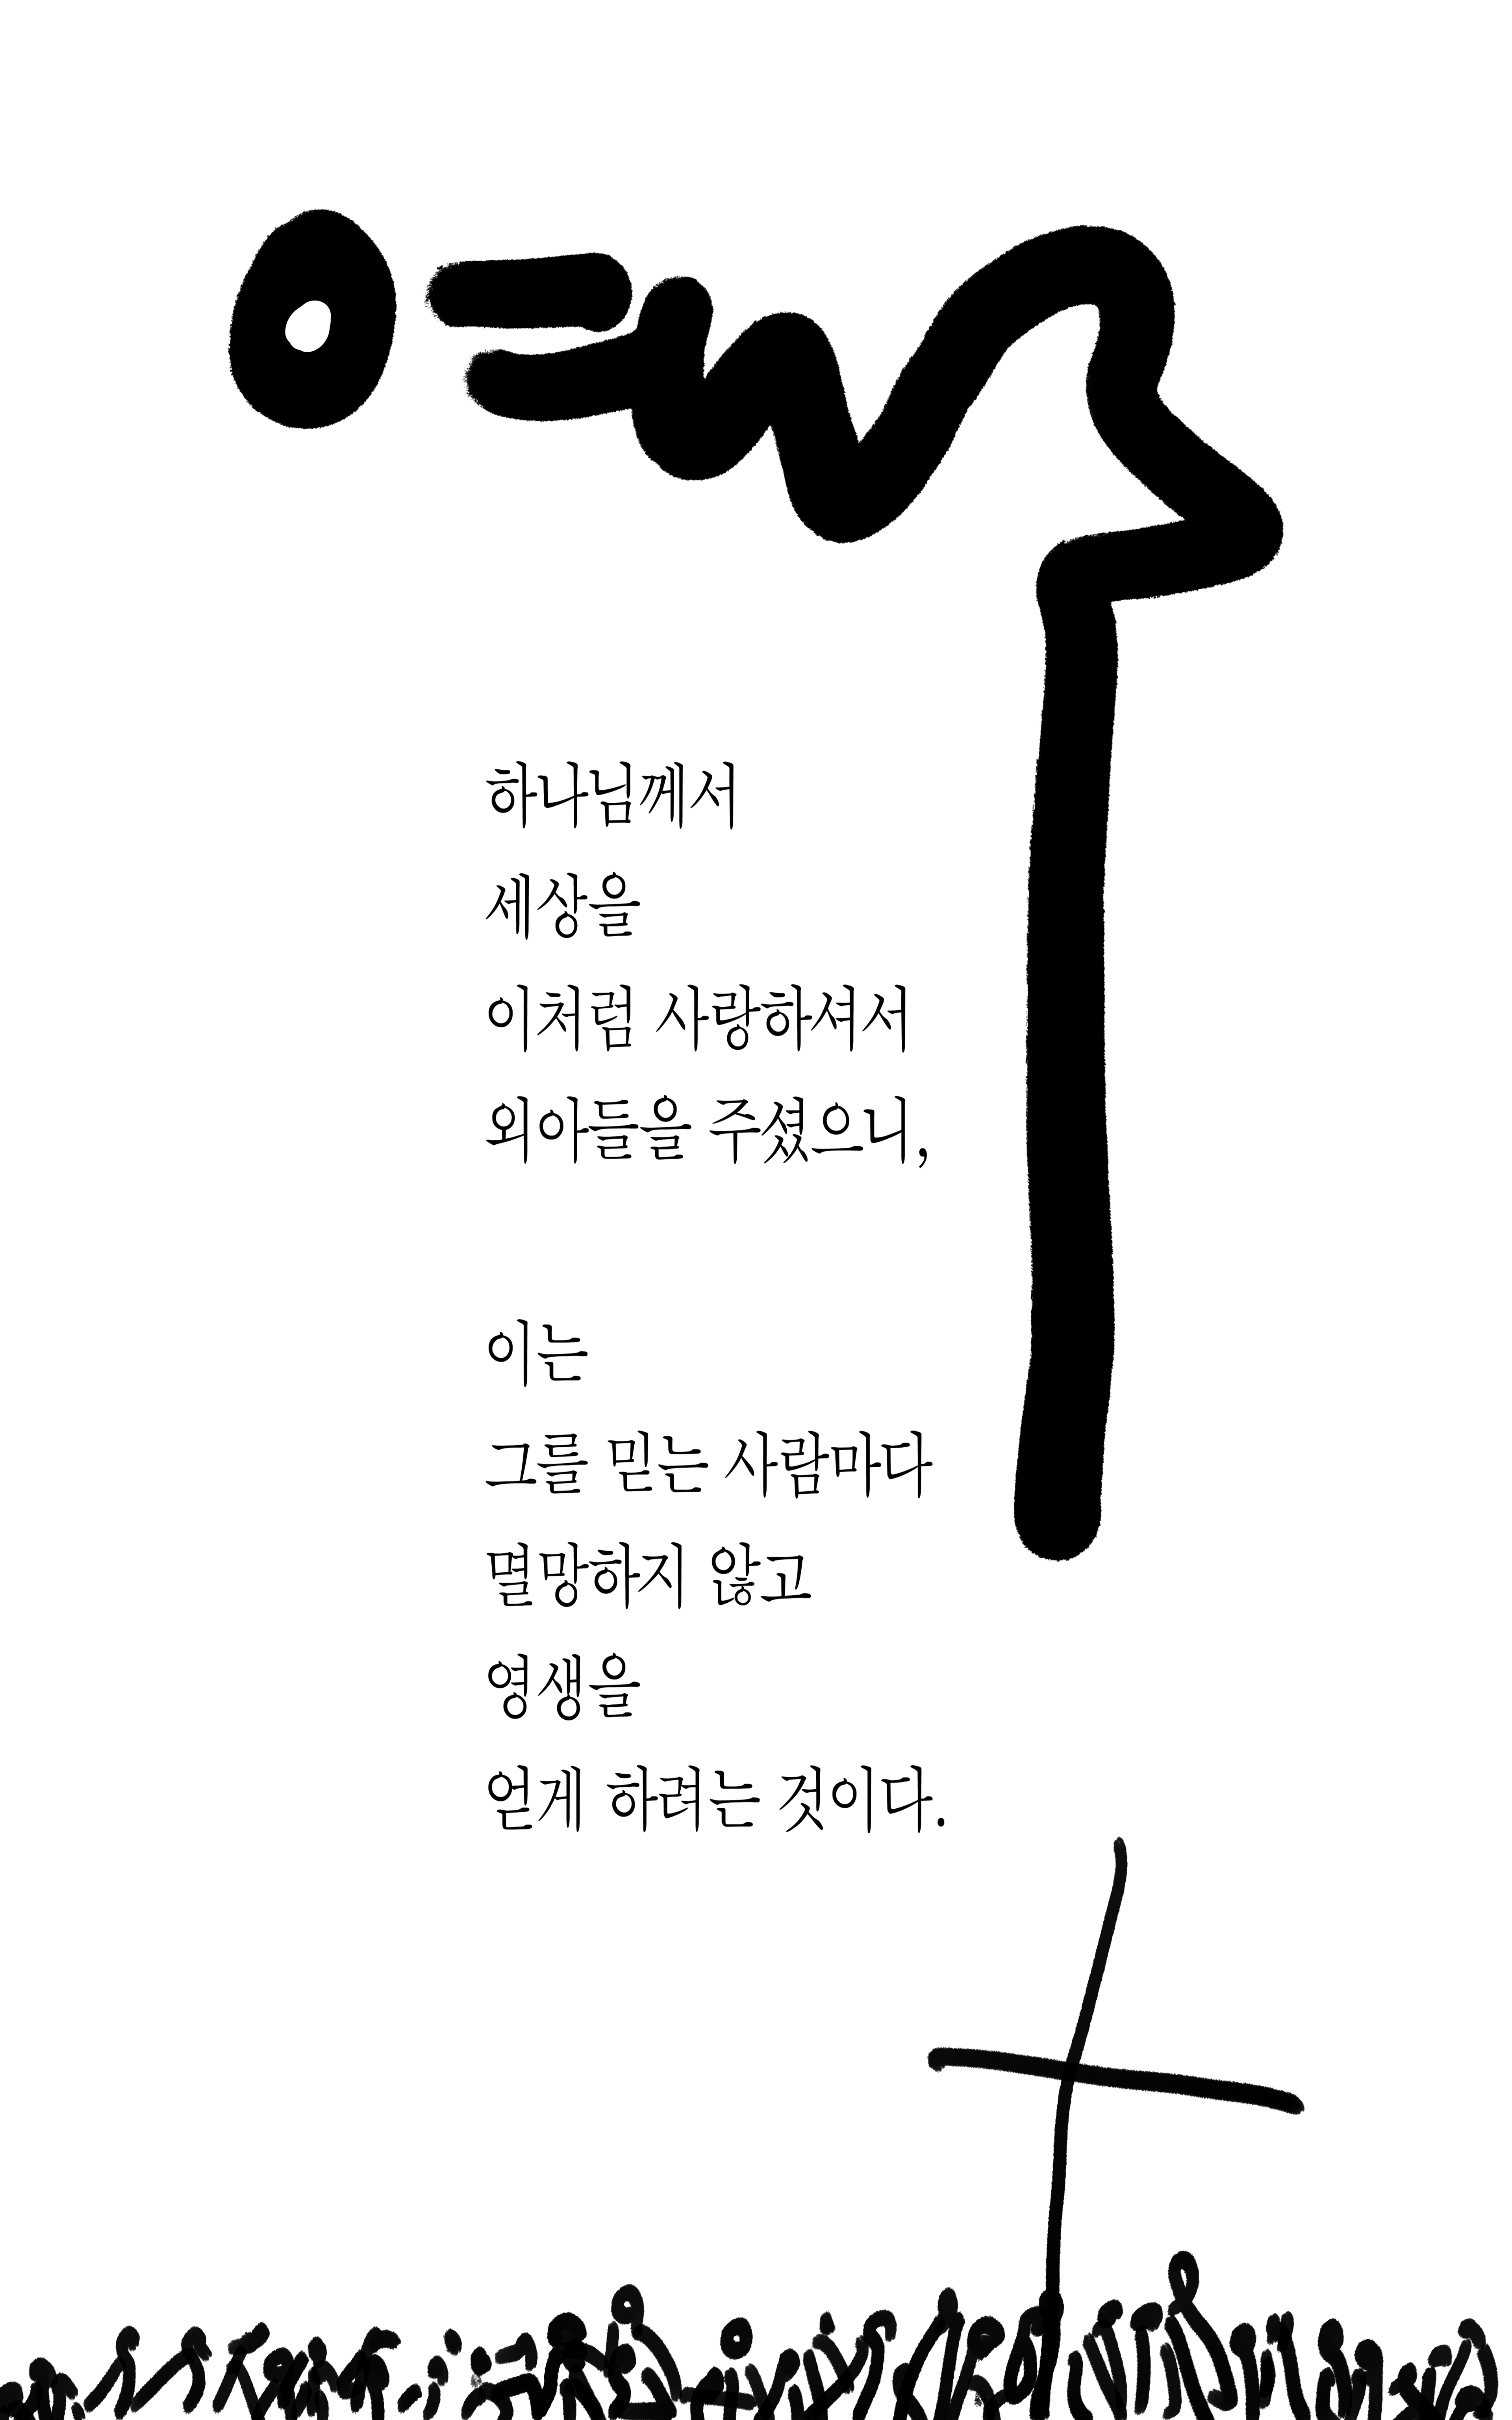 예수
하나님께서
세상을
이처럼 사랑하셔서
외아들을 주셨으니,
이는
그를 믿는 사람마다
멸망하지 않고
영생을
얻게 하려는 것이다.